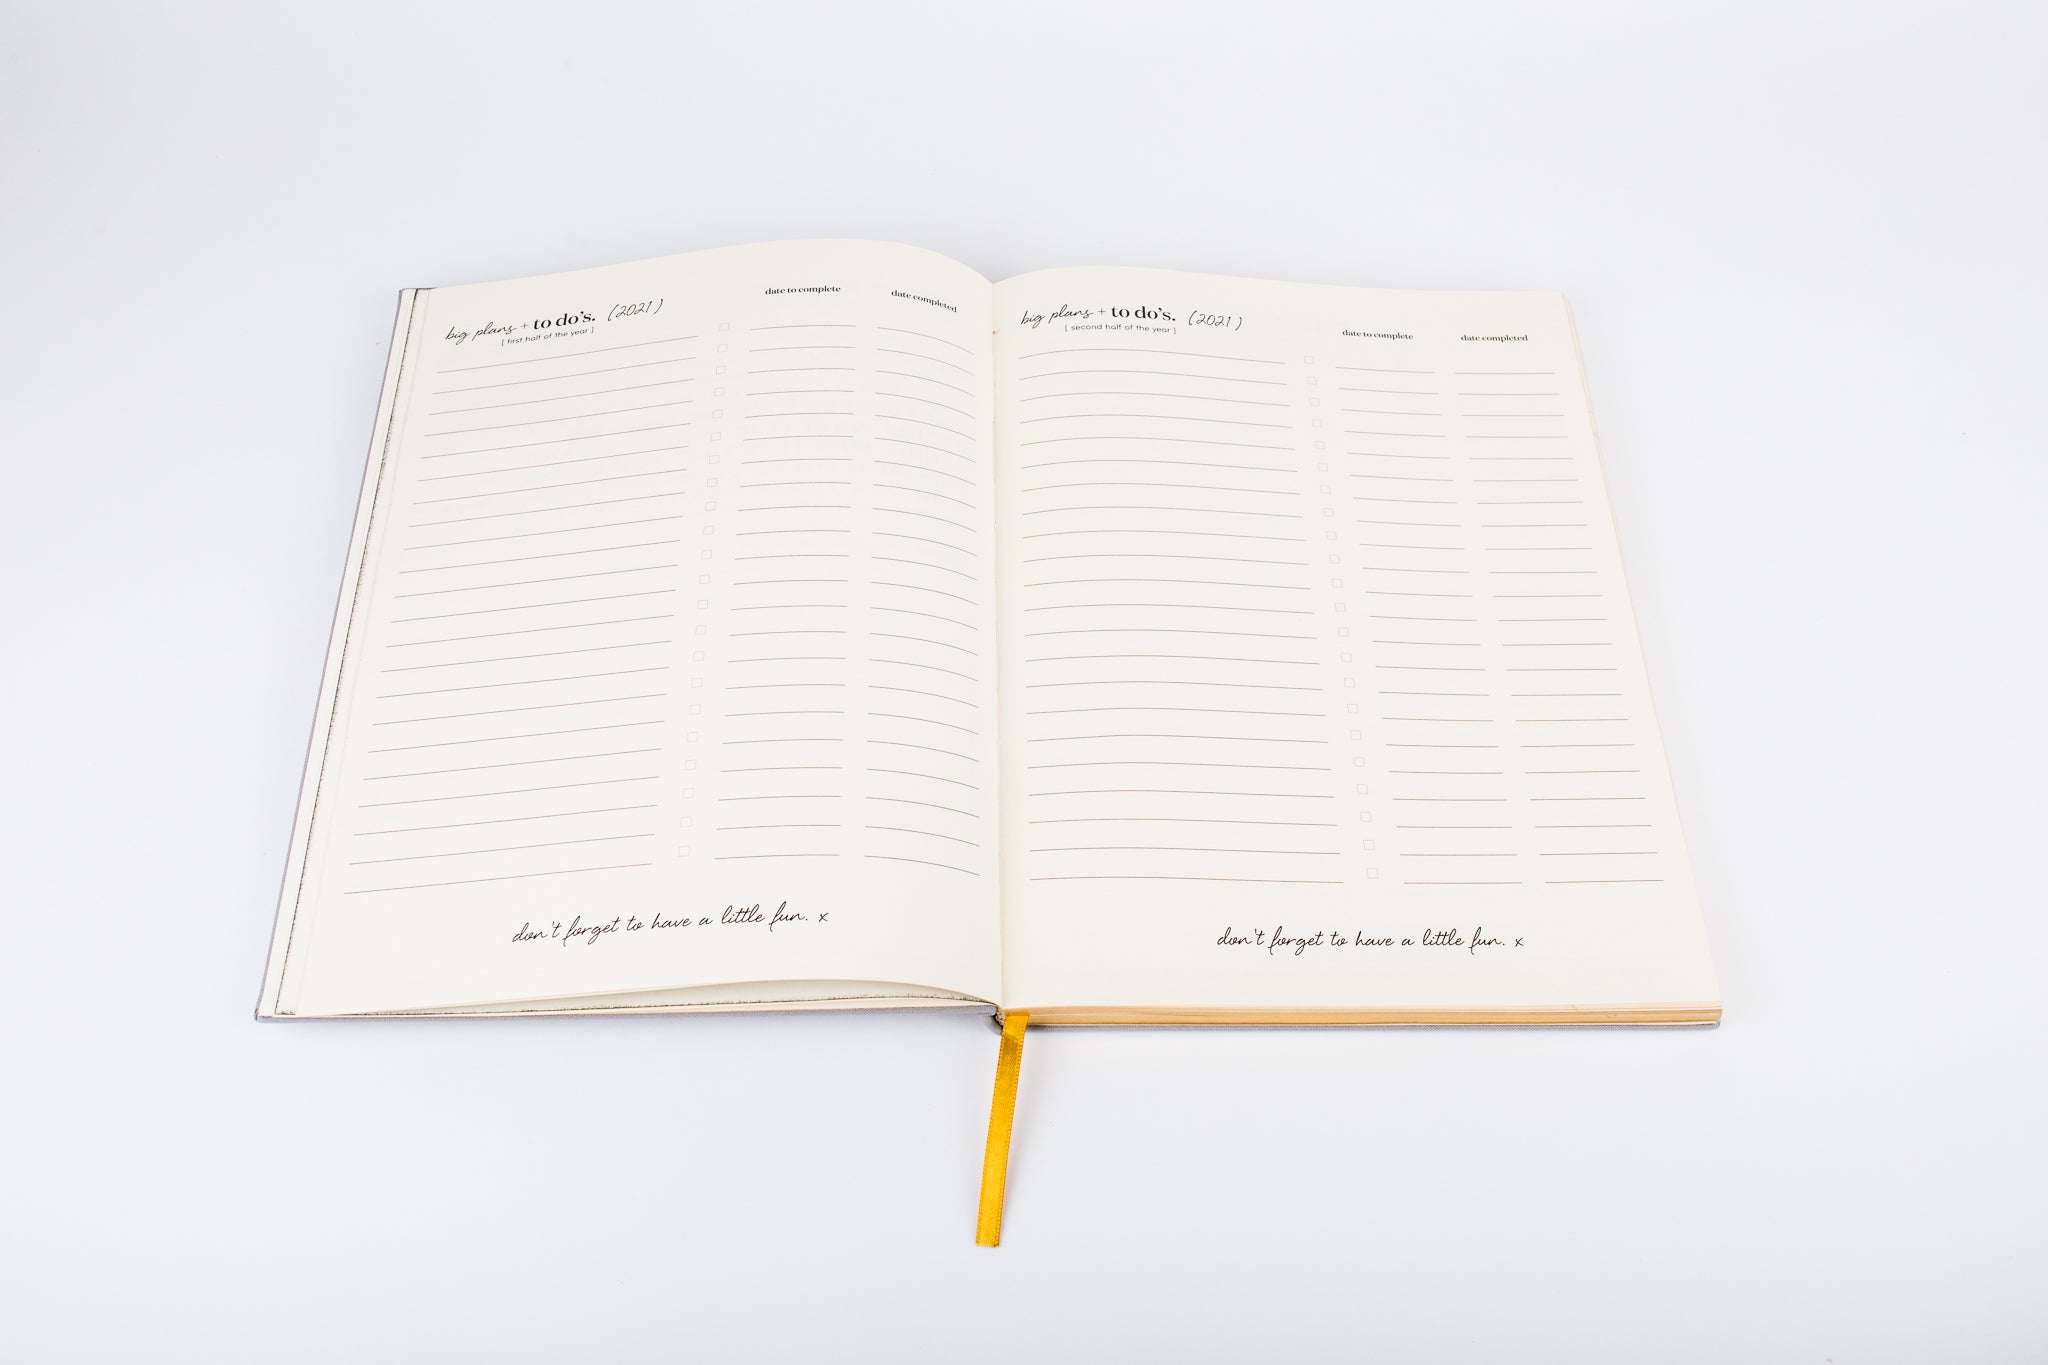 big plans + to do's. (2021)
[ first half of the year ]
date to complete
date completed
don't forget to have a little fun. x
big plans + to do's. (2021)
[ second half of the year ]
date to complete
date completed
don't forget to have a little fun. x